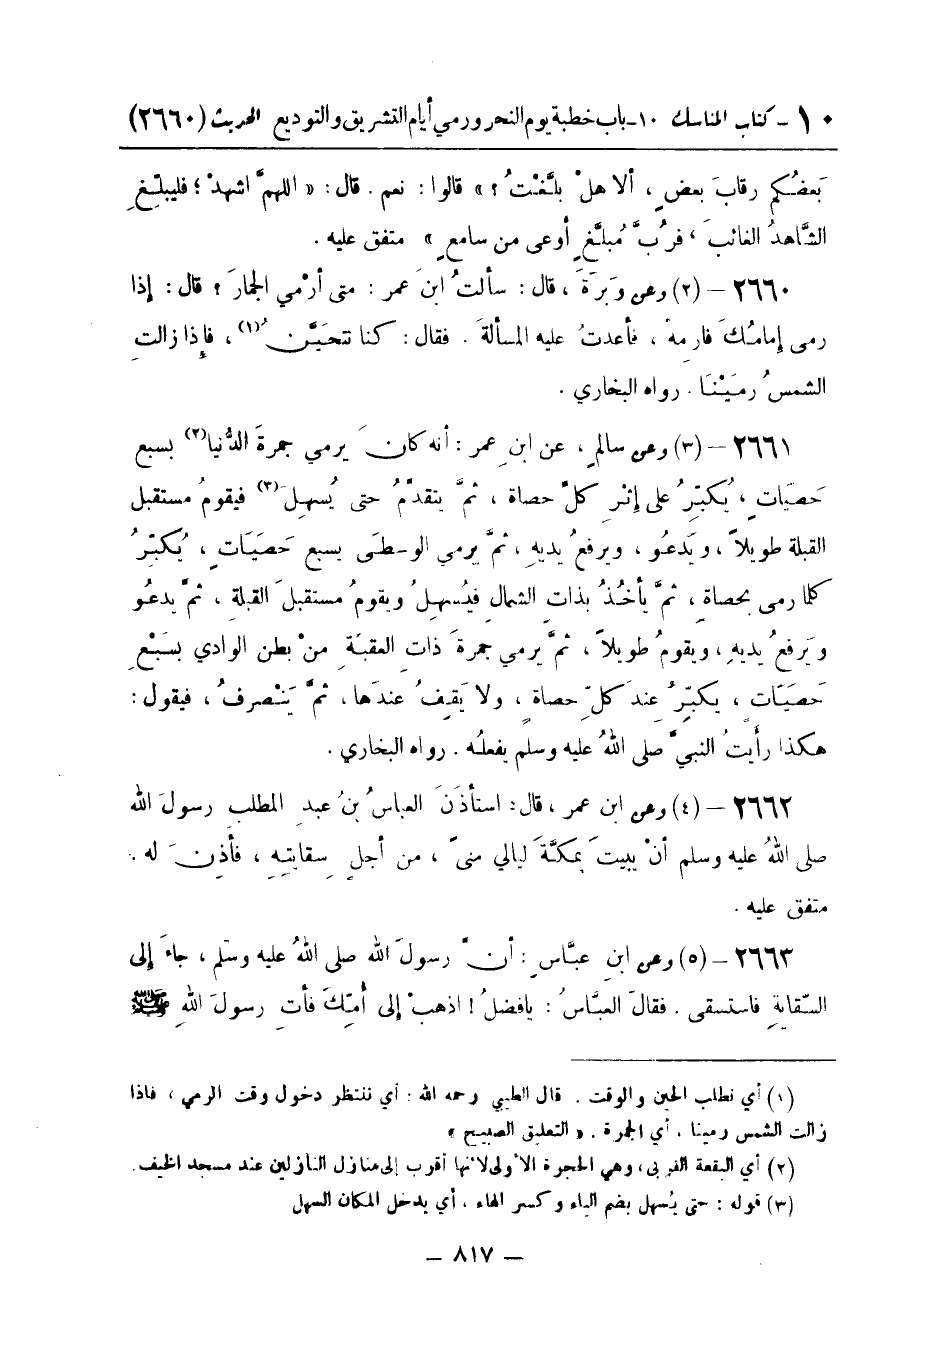 ١٠ - كتاب المناسك ١٠ - باب خطبة يوم النحر ورمي أيام التشريق والتوديع الحديث (٢٦٦٠)
بَعضُكم رقابَ بعضٍ ، ألا هلْ بلَّغْتُ ؟ » قالوا : نعم . قال : « اللهمَّ اشهدْ ؛ فليبلّغِ
الشَّاهدُ الغائبَ ، فرُبَّ مُبلَّغٍ أوعى من سامعٍ » متفق عليه .
٢٦٦٠ – (٢) وعن وَبَرَةَ ، قال : سألتُ ابنَ عمر : متى أرْمي الجمارَ ؟ قال : إذا
رمى إمامُكَ فارمِهْ ، فأعدتُ عليه المسألةَ . فقال : كنا نتحَيَّنُ (١) ، فإذا زالتِ
الشمسُ رمَيْنَا . رواه البخاري .
٢٦٦١ – (٣) وعن سالمٍ ، عن ابنِ عمر : أنه كانَ يرمي جمرةَ الدُّنيا (٢) بسبع
حَصَيَاتٍ ، يُكبّرُ على إثْرِ كلِّ حصاة ، ثمَّ يتقدَّمُ حتى يُسهِلَ (٣) فيقومُ مستقبل
القبلة طويلاً ، ويَدعُو ، ويرفعُ يديهِ ، ثمَّ يرمي الوسطَى بسبع حَصَيَاتٍ ، يُكبّرُ
كلما رمى بحصاةٍ ، ثمَّ يأخُذُ بذاتِ الشمالِ فيُسهِلُ ويقومُ مستقبلَ القبلةِ ، ثمَّ يدعُو
ويَرفعُ يديهِ ، ويقومُ طويلاً ، ثمَّ يرمي جمرةَ ذاتِ العقبَةِ منْ بطنِ الوادي بسَبْعِ
حَصَيَاتٍ ، يكبّرُ عندَ كلِّ حصاةٍ ، ولا يَقِفُ عندَها ، ثمَّ يَنْصرفُ ، فيقول :
هكذا رأيتُ النبيَّ صلى اللهُ عليه وسلم يفعلُه . رواه البخاري .
٢٦٦٢ – (٤) وعن ابن عمر ، قال : استأذَنَ العباسُ بنُ عبدِ المطلب رسولَ الله
صلى اللهُ عليه وسلم أنْ يبيتَ بمكَّةَ ليالي منىً ، من أجلِ سِقايتِهِ ، فأذِنَ له .
متفق عليه .
٢٦٦٣ – (٥) وعن ابنِ عبَّاسٍ : أنَّ رسولَ الله صلى اللهُ عليه وسلّم ، جاءَ إلى
السّقايةِ فاستسقى . فقالَ العبَّاسُ : يا فضلُ ! اذهبْ إلى أُمّكَ فأتِ رسولَ اللهِ ﷺ
(١) أي نطلب الحين والوقت . قال الطيبي رحمه الله : أي ننتظر دخول وقت الرمي ، فاذا
زالت الشمس رمينا ، أي الجمرة . « التعليق الصبيح »
(٢) أي البقعة القربى ، وهي الجمرة الأولى لأنها أقرب إلى منازل النازلين عند مسجد الخيف .
(٣) قوله : حتى يُسهل بضم الياء وكسر الهاء ، أي يدخل المكان السهل
– ٨١٧ –